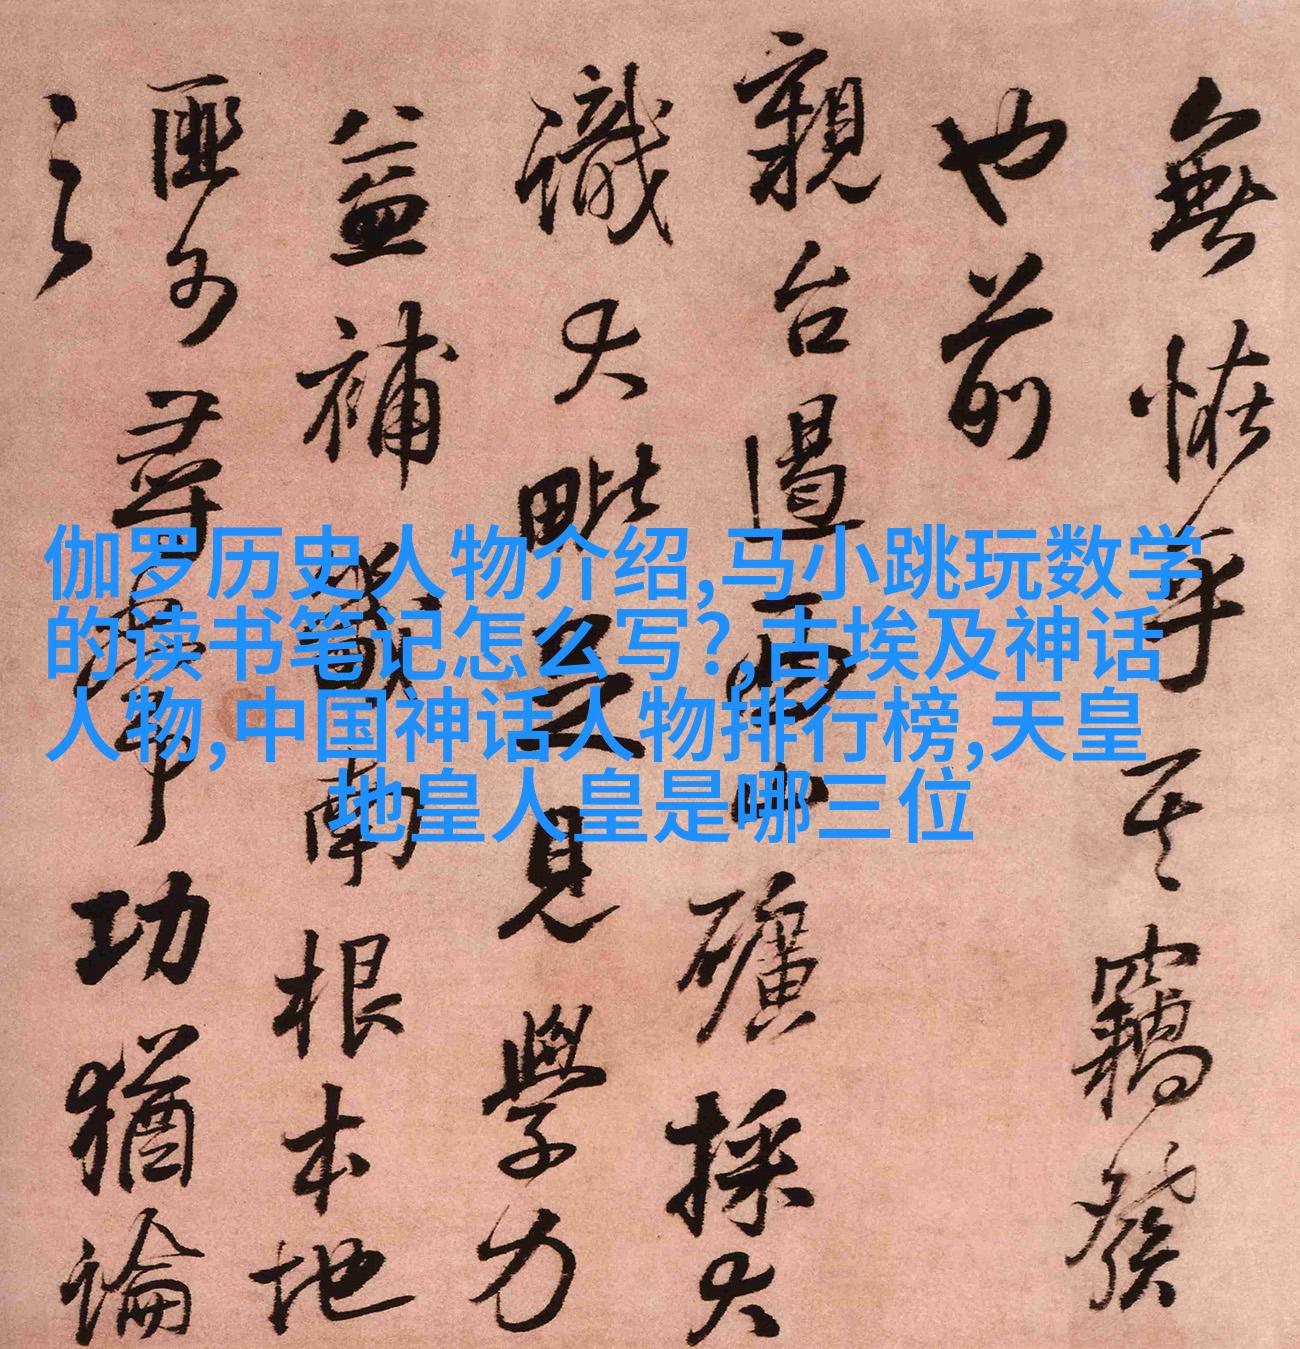 無恠乎其竊發
也前
親台邊
礦採大
識大
見學力
益補
南根本地
匪
尋
功猶論
之
伽罗历史人物介绍,马小跳玩数学
的读书笔记怎么写?,古埃及神话
人物,中国神话人物排行榜,天皇
地皇人皇是哪三位